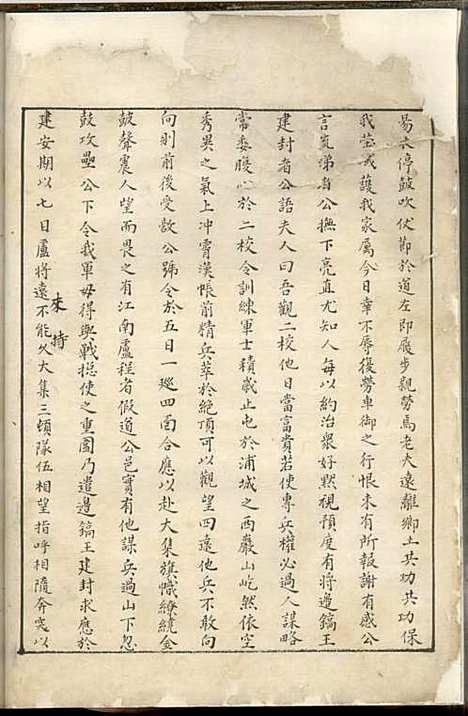 易衣停皷吹伏節於道左即屨步親勞焉老夫遠離鄉土共功共功保
我塋域護我家屬今日幸不辱復勞車御之行恨未有所報謝有感公
言嵗涕自公撫下亮直尤知人每以約治眾好默視預度有將邉鎬王
建封者公語夫人曰吾觀二校他日當富貴若使專兵權必過人謀略
常委腹心於二校令訓練軍士積歲止屯於浦城之西巖山屹然依空
秀異之氣上冲霄漢帳前精兵萃於絶頂可以觀望四遠他兵不敢向
向則前後受敵公號令於五日一廵四面合應以赴大集旗幟繚繞金
皷聲震人望而畏之有江南盧程者假道公邑實有他謀兵過山下忽
鼓攻壘公下令我軍毋得與戰縂使之重圍乃遣邉鎬王建封求應於
建安期以七日盧將遠不能久大集三頓隊伍相望指呼相隨奔突以
來持